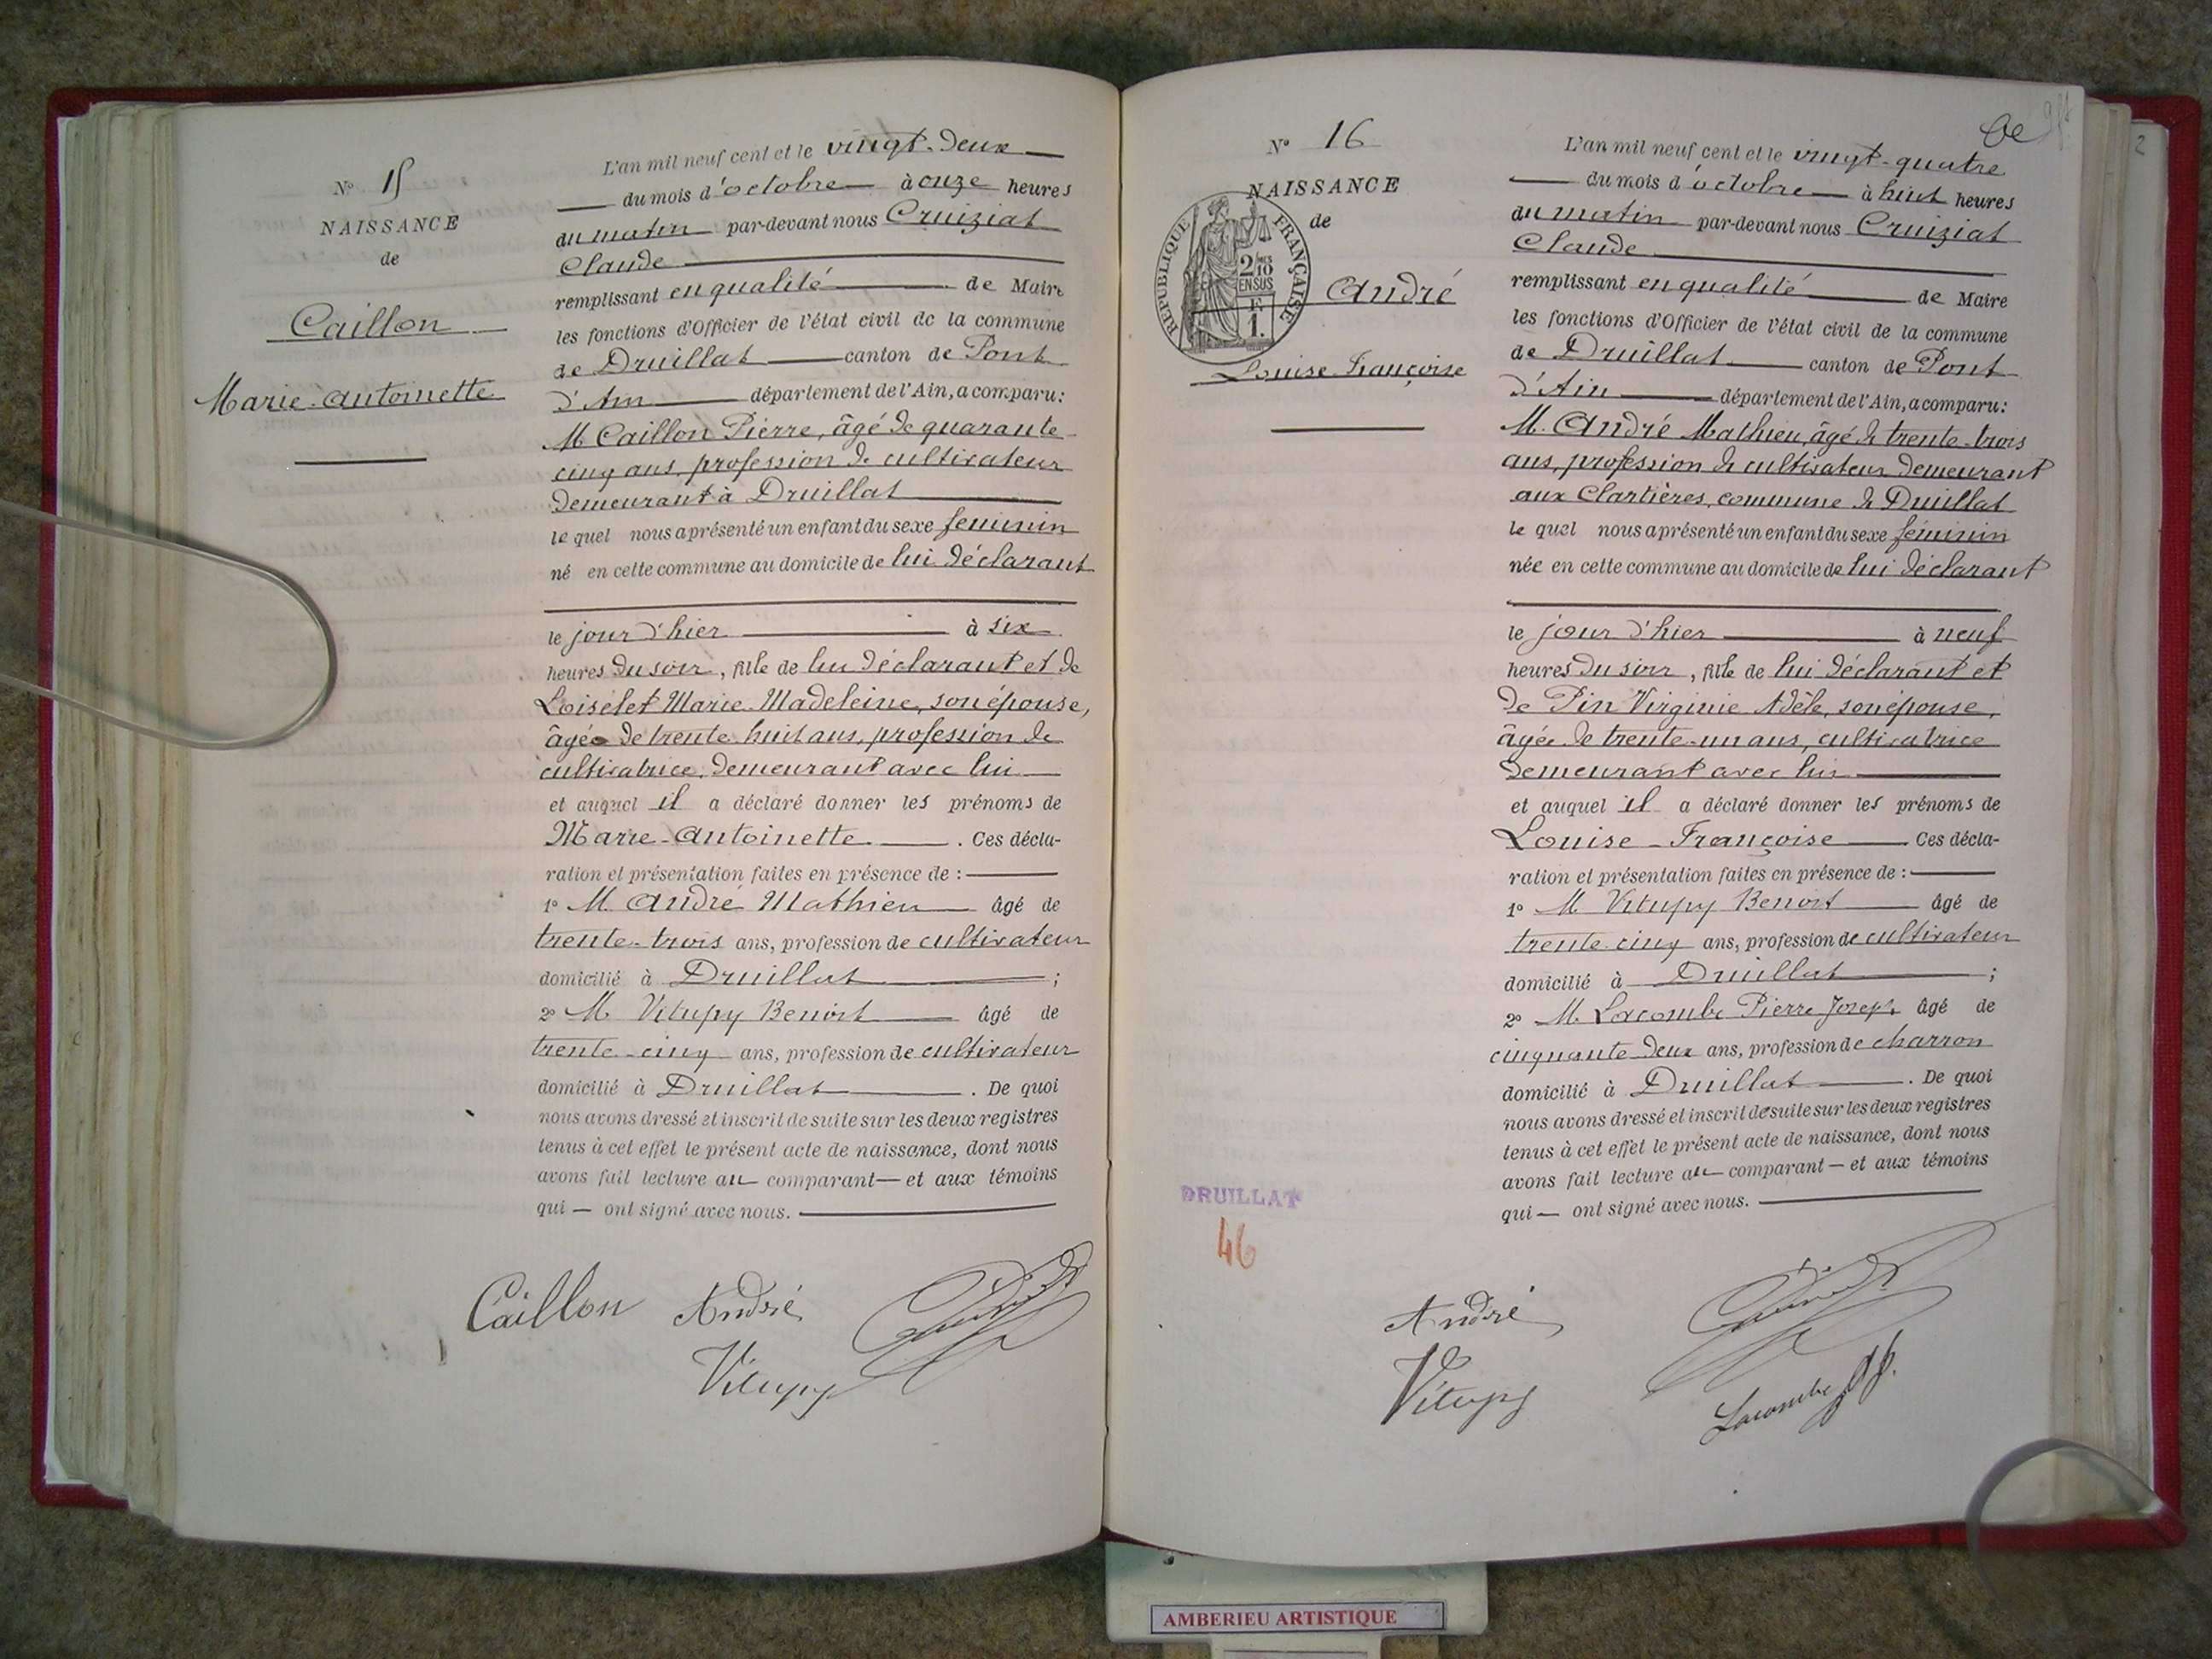 N° 15
NAISSANCE
de
Caillon
Marie-Antoinette
L'an mil neuf cent et le vingt-deux
du mois d'octobre à onze heures
du matin par-devant nous Cruiziat
Claude
remplissant en qualité de Maire
les fonctions d'Officier de l'état civil de la commune
de Druillat canton de Pont
d'Ain département de l'Ain, a comparu:
M. Caillon Pierre, âgé de quarante-
cinq ans, profession de cultivateur
demeurant à Druillat
le quel nous a présenté un enfant du sexe féminin
né en cette commune au domicile de lui déclarant
le jour d'hier à six
heures du soir, fille de lui déclarant et de
Loiselet Marie-Madeleine, son épouse,
âgée de trente-huit ans, profession de
cultivatrice, demeurant avec lui
et auquel il a déclaré donner les prénoms de
Marie-Antoinette. Ces décla-
ration et présentation faites en présence de :
1° M. André Mathieu âgé de
trente-trois ans, profession de cultivateur
domicilié à Druillat ;
2° M. Vitupy Benoit âgé de
trente-cinq ans, profession de cultivateur
domicilié à Druillat. De quoi
nous avons dressé et inscrit de suite sur les deux registres
tenus à cet effet le présent acte de naissance, dont nous
avons fait lecture au comparant — et aux témoins
qui — ont signé avec nous.
Caillon André
Vitupy
N° 16
NAISSANCE
de
André
Louise Françoise
REPUBLIQUE FRANÇAISE
2/10
EN SUS
F
1.
L'an mil neuf cent et le vingt-quatre
du mois d'octobre à huit heures
du matin par-devant nous Cruiziat
Claude
remplissant en qualité de Maire
les fonctions d'Officier de l'état civil de la commune
de Druillat canton de Pont
d'Ain département de l'Ain, a comparu:
M. André Mathieu, âgé de trente-trois
ans, profession de cultivateur demeurant
aux Clartières, commune de Druillat
le quel nous a présenté un enfant du sexe féminin
née en cette commune au domicile de lui déclarant
le jour d'hier à neuf
heures du soir, fille de lui déclarant et
de Pin Virginie Adèle, son épouse,
âgée de trente-un ans, cultivatrice
demeurant avec lui
et auquel il a déclaré donner les prénoms de
Louise-Françoise Ces décla-
ration et présentation faites en présence de :
1° M. Vitupy Benoit âgé de
trente-cinq ans, profession de cultivateur
domicilié à Druillat ;
2° M. Lacombe Pierre Joseph âgé de
cinquante-deux ans, profession de charron
domicilié à Druillat. De quoi
nous avons dressé et inscrit de suite sur les deux registres
tenus à cet effet le présent acte de naissance, dont nous
avons fait lecture au comparant — et aux témoins
qui — ont signé avec nous.
DRUILLAT
46
André
Vitupy
Lacombe
2
AMBERIEU ARTISTIQUE